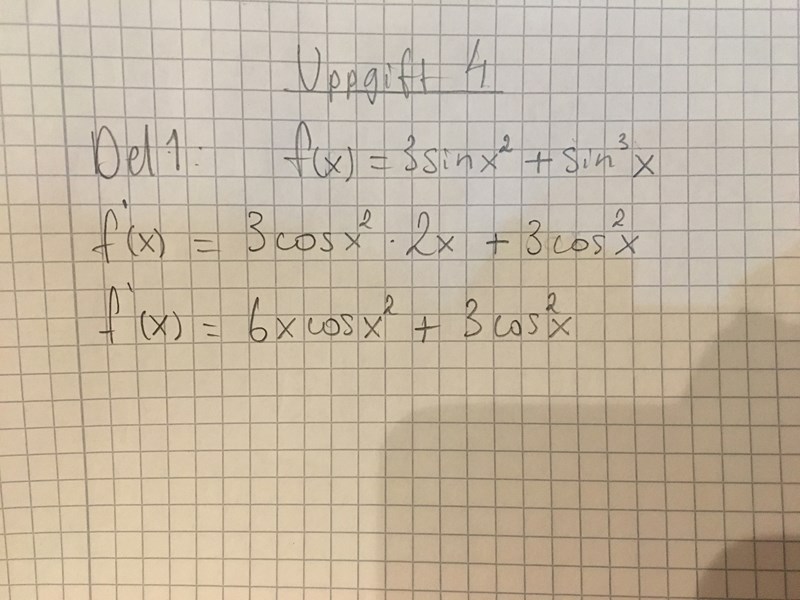 Uppgift 4
Del 1: f(x) = 3 sin x² + sin³ x
f'(x) = 3 cos x² · 2x + 3 cos² x
f'(x) = 6x cos x² + 3 cos² x